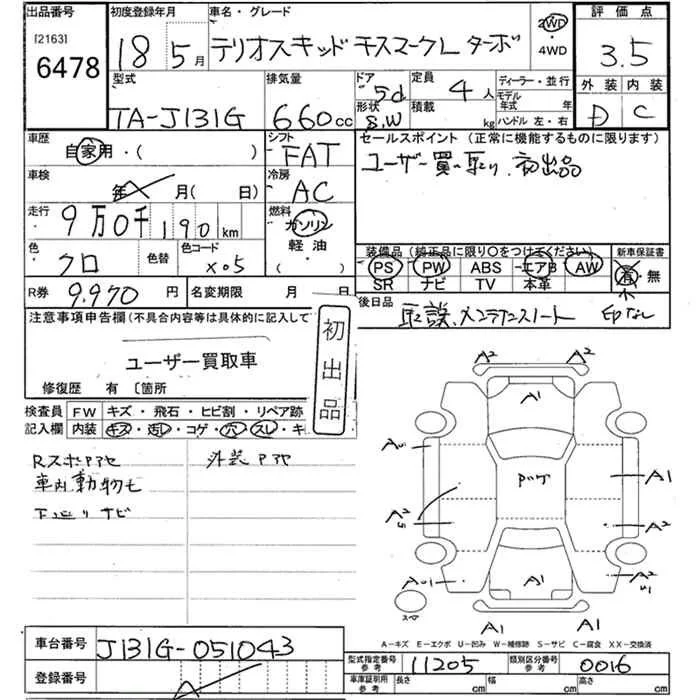 出品番号
[2163]
6478
初度登録年月
18 5月
車名・グレード
テリオスキッド キスマークL ターボ
2WD
・
4WD
評価点
3.5
外装 内装
D C
型式
TA-J131G
排気量
660cc
ドア
5d
形状
S.W
定員
4人
積載
kg
ディーラー・並行
モデル
年式 年
ハンドル 左・右
車歴
自家用・( )
シフト
FAT
セールスポイント(正常に機能するものに限ります)
ユーザー買い取り 初出品
車検
年 月( 日)
冷房
AC
走行
9万0千190km
燃料
ガソリン
軽油
( )
色
クロ
色替
色コード
X05
装備品(純正品に限り○をつけてください)
PS PW ABS エアB AW
SR ナビ TV 本革
新車保証書
有・無
R券
9.970円
名変期限 月 日
後日品
取説 メンテナンスノート 印なし
注意事項申告欄(不具合内容等は具体的に記入して
ユーザー買取車
修復歴 有 〔箇所
初出品
検査員 FW キズ・飛石・ヒビ割・リペア跡
記入欄 内装 キズ・汚レ・コゲ・穴・スレ・キ
車内動物モ
下廻りサビ
A2 A2
A1
A1
A2
A2
A1
A1 A1
スペア
A-キズ E-エクボ U-凹み W-補修跡 S-サビ C-腐食 XX-交換済
車台番号
J131G-051043
登録番号
型式指定番号
参考
11205
類別区分番号
参考
0016
車庫証明用
参考
長さ cm 幅 cm 高さ cm